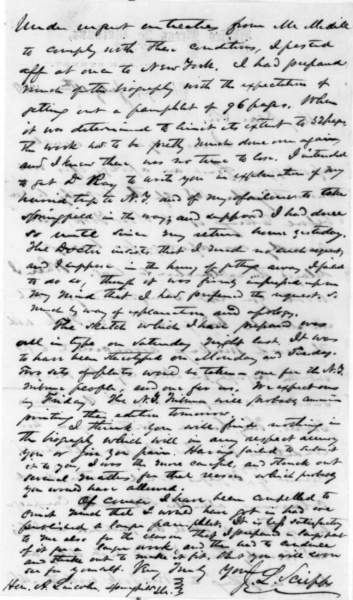 Under urgent entreaties from Mr Medill
to comply with these conditions, I posted
off at once to New York. I had prepared
much of the biography with the expectation of
getting out a pamphlet of 96 pages. When
it was determined to limit its extent to 32 pages
the work had to be pretty much done over again
and I knew there was no time to lose. I intended
to get Dr Ray to write you in explanation of my
hurried trip to N.Y. and of my failure to take
Springfield in the way, and supposed I had done
so until since my return home yesterday.
The Doctor insists that I made no such request,
and I suppose in the hurry of getting away I failed
to do so, though it was firmly impressed upon
my mind that I had preferred the request. So
much by way of explanation and apology.
The sketch which I have prepared was
all in type on Saturday night last. It was
to have been stereotyped on Monday and Tuesday.
Two sets of plates would be taken one for the N.Y.
Tribune people and one for us. We expect ours
on Friday. The N.Y. Tribune will probably commence
printing their edition tomorrow.
I think you will find nothing in
the biography which will in any respect annoy
you or give you pain. Having failed to submit
it to you, I was the more careful, and struck out
several matters for that reason which probably
you would have allowed.
Of course I have been compelled to
omit much that I would have got in had we
published a larger pamphlet. It is less satisfactory
to me also for the reason that I prepared a large part
of it for a larger work and then had to reduce
and strike out to make it fit. But you will soon
see for yourself. Very Truly Yours
J. L. Scripps
Hon. A. Lincoln, Springfield Ill.